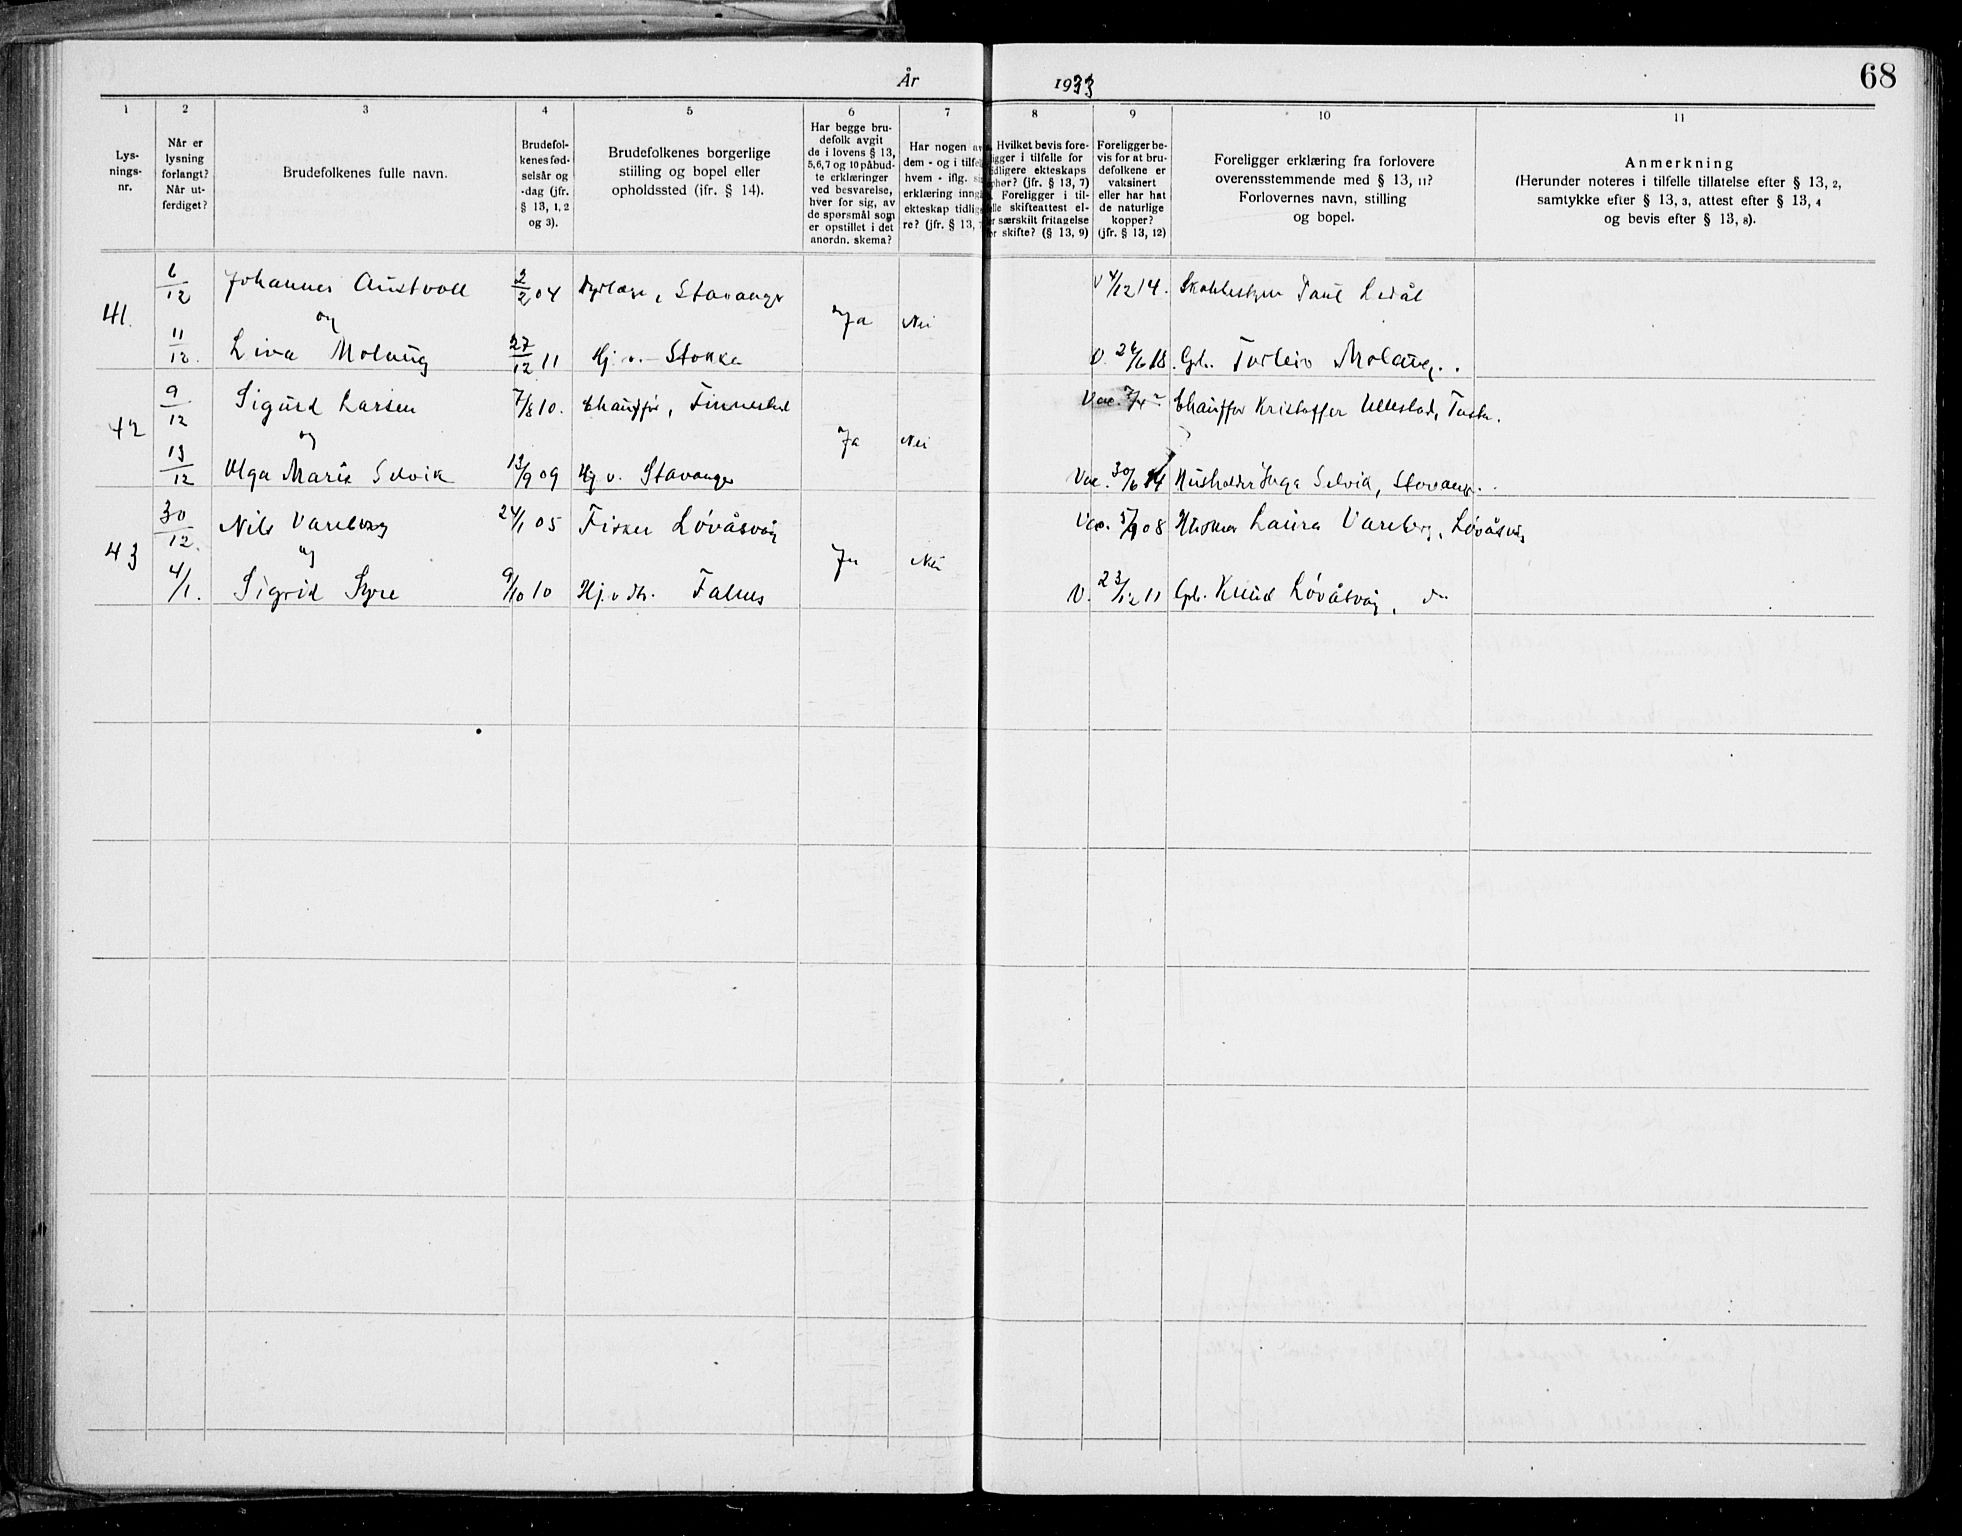 År 1933
68
1 2 3 4 5 6 7 8 9 10 11
Lys-
nings-
nr.
Når er
lysning
forlangt?
Når ut-
ferdiget?
Brudefolkenes fulle navn.
Brudefol-
kenes fød-
selsår og
-dag (jfr.
§ 13, 1, 2
og 3).
Brudefolkenes borgerlige
stilling og bopel eller
opholdssted (jfr. § 14).
Har begge bru-
defolk avgit
de i lovens § 13,
5,6,7 og 10 påbud-
te erklæringer
ved besvarelse,
hver for sig, av
de spørsmål som
er opstillet i det
anordn. skema?
Har nogen av
dem - og i tilfel
hvem - iflg.
erklæring inngå
ekteskap tidlig
re? (jfr. § 13,
Hvilket bevis fore-
igger i tilfelle for
idligere ekteskaps
phør? (jfr. § 13, 7)
Foreligger i til-
elle skifteattest el-
r særskilt fritagelse
or skifte? (§ 13, 9)
Foreligger be-
vis for at bru-
defolkene er
vaksinert
eller har hat
de naturlige
kopper?
(jfr. § 13, 12)
Foreligger erklæring fra forlovere
overensstemmende med § 13, 11?
Forlovernes navn, stilling
og bopel.
Anmerkning
(Herunder noteres i tilfelle tillatelse efter § 13, 2,
samtykke efter § 13, 3, attest efter § 13, 4
og bevis efter § 13, 8).
6/12 Johannes Austvoll 2/2 04 Dyrlæge, Stavanger V 4/12 14. Paul Ledål
41. og Ja Nei
11/12. Liva Molaug 27/12 11 Hj. v. Stokka V. 26/6 18. Gbr. Torleiv Molaug.
9/12 Sigurd Larsen 7/8 10. Chauffør, Finnestad Vac. Chauffør Kristoffer Ullestad, Tasta.
42 og Ja Nei
13/12 Olga Marie Selvik 13/9 09 Hj v. Stavanger Vac. 30/6 14 Inga Selvik, Stavanger.
30/12. Nils Vareberg 24/1 05 Fisker Løvåsvåg Vac. 5/9 08 Laura Vareberg, Løvåsvåg
43 og Ja Nei
4/1. Sigrid Syre 9/10 10 Hj. v. Falnes V. 23/12 11 Gbr. Knud Løvåsvåg, do